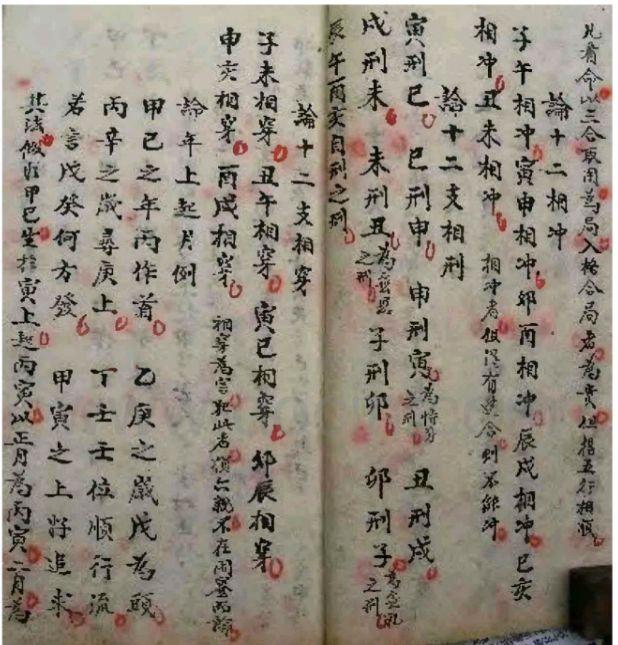 凡看命以三合取用為局入格合局者為貴但指五行相順
論十二相冲
子午相冲寅申相冲卯酉相冲辰戌相冲巳亥
相冲丑未相冲 相冲者但没有 合則不能冲
論十二支相刑
寅刑巳 巳刑申 申刑寅為恃势之刑 丑刑戌
戌刑未 未刑丑為 之刑 子刑卯 卯刑子為無礼之刑
辰午酉亥自刑之刑
論十二支相穿
子未相穿 丑午相穿 寅巳相穿 卯辰相穿
申亥相穿 酉戌相穿 相穿為害犯此者 六親不在
論年上起月例
甲己之年丙作首 乙庚之歲戊為頭
丙辛之歲尋庚上 丁壬壬位順行流
若言戊癸何方發 甲寅之上好追求
其法假如甲己生於寅上起丙寅以正月為丙寅二月為